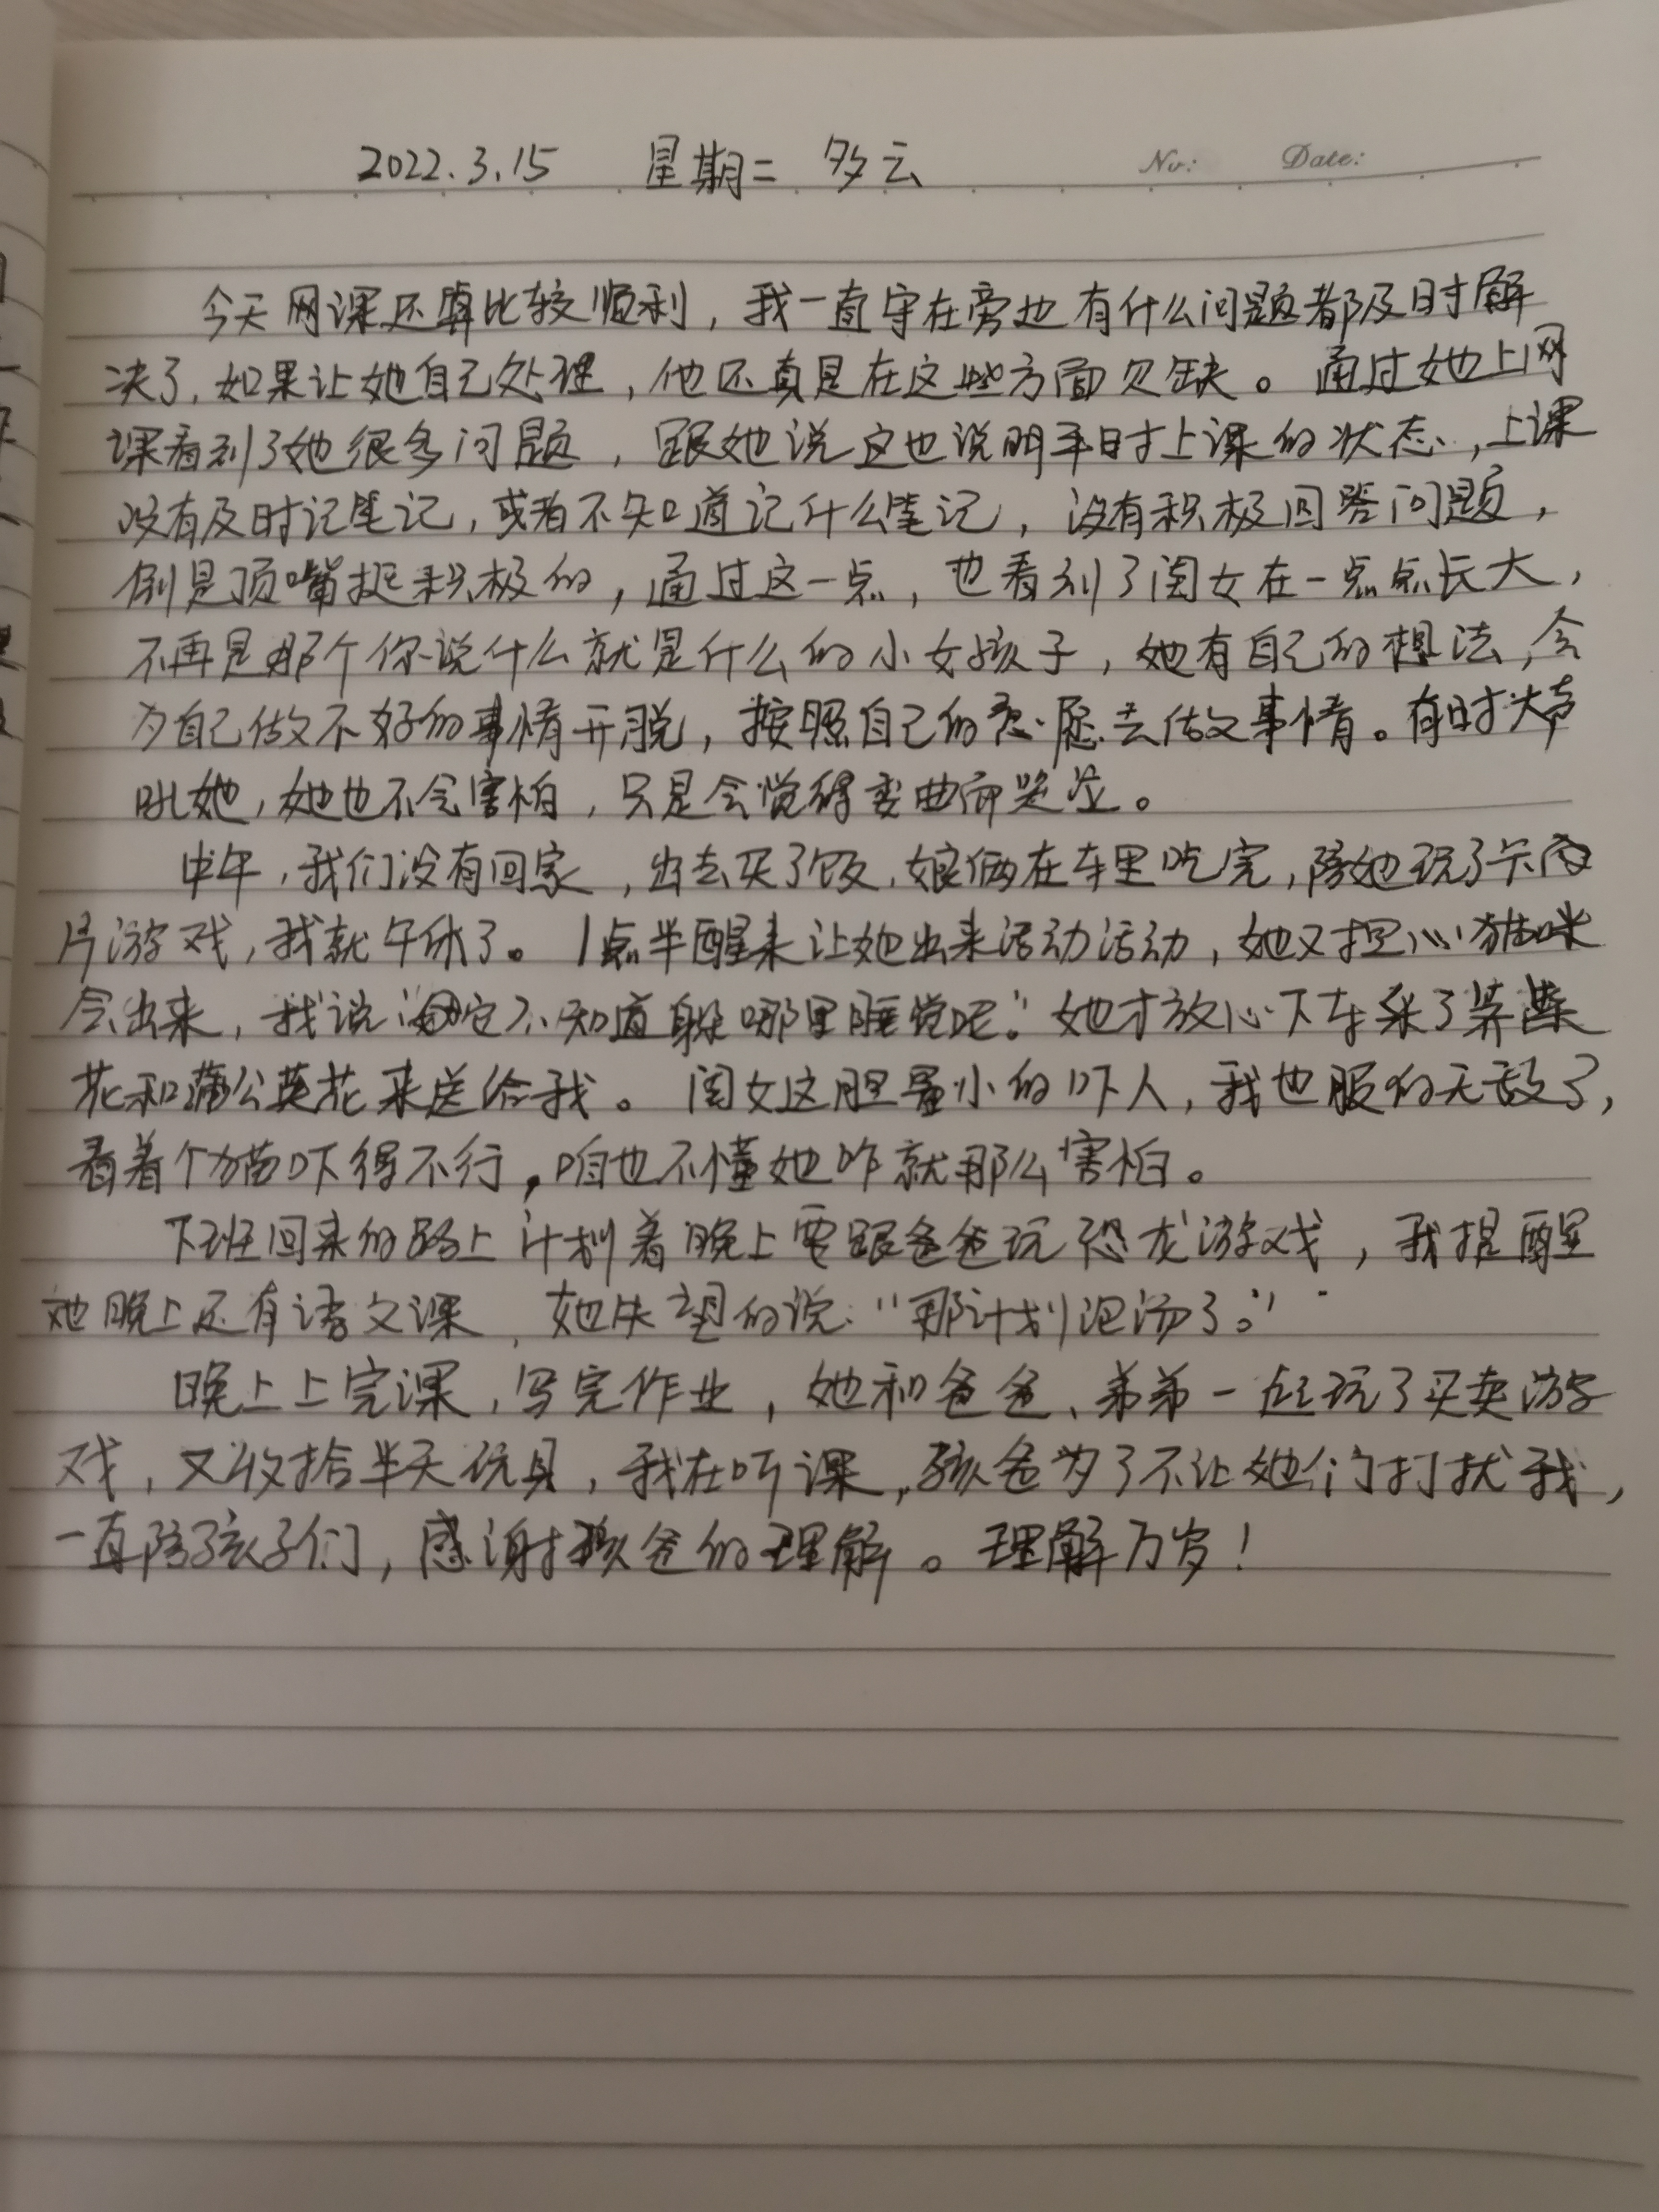 2022.3.15 星期二 多云 No: Date:
今天网课还算比较顺利，我一直守在旁边有什么问题都及时解
决了，如果让她自己处理，他还真是在这些方面欠缺。通过她上网
课看到了她很多问题，跟她说这也说明平时上课的状态，上课
没有及时记笔记，或者不知道记什么笔记，没有积极回答问题，
倒是顶嘴挺积极的，通过这一点，也看到了闺女在一点点长大，
不再是那个你说什么就是什么的小女孩子，她有自己的想法，会
为自己做不好的事情开脱，按照自己的意愿去做事情。有时大声
吼她，她也不会害怕，只是会觉得委曲而哭泣。
中午，我们没有回家，出去买了饭，娘俩在车里吃完，陪她玩了卡
片游戏，我就午休了。1点半醒来让她出来活动活动，她又担心猫咪
会出来，我说：“它不知道躲哪里睡觉呢。”她才放心下车采了荠菜
花和蒲公英花来送给我。闺女这胆量小的吓人，我也服的无敌了，
看着个猫吓得不行，咱也不懂她咋就那么害怕。
下班回来的路上计划着晚上要跟爸爸玩恐龙游戏，我提醒
她晚上还有语文课，她失望的说：“那计划泡汤了。”
晚上上完课，写完作业，她和爸爸、弟弟一起玩了买卖游
戏，又收拾半天玩具，我在听课，孩爸为了不让她们打扰我，
一直陪孩子们，感谢孩爸的理解。理解万岁！